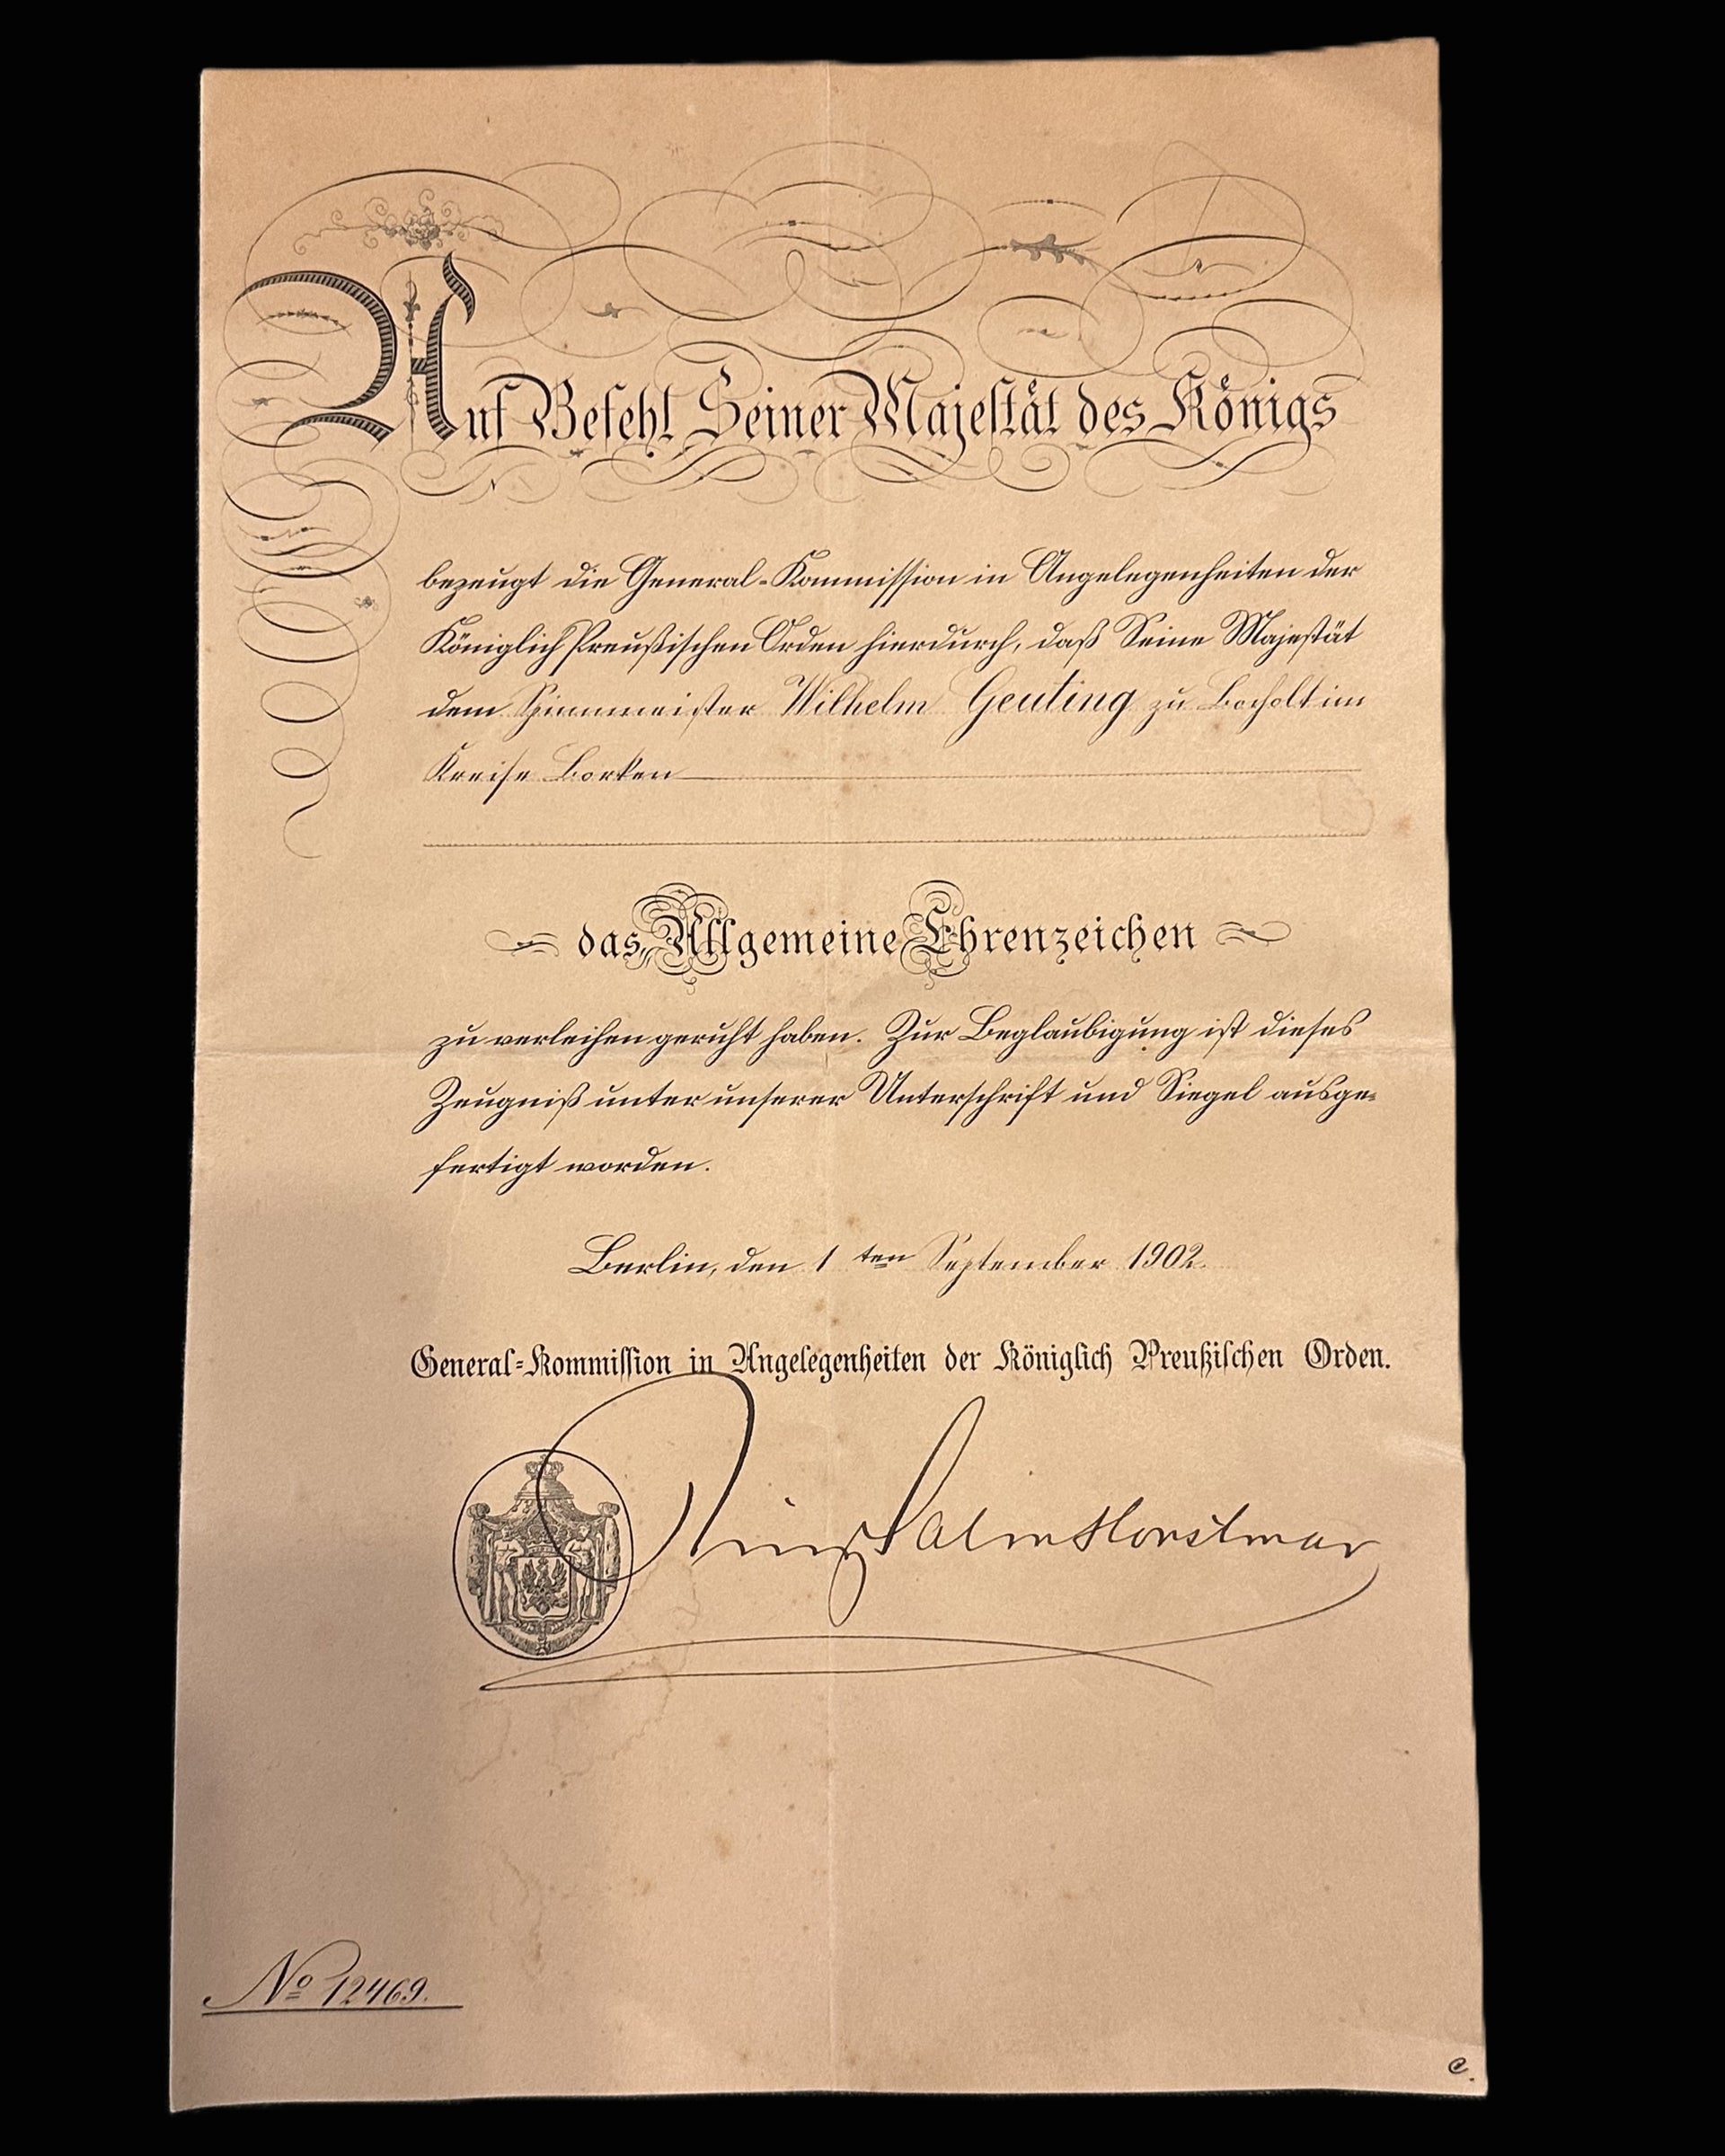 Auf Befehl Seiner Majestät des Königs
bezeugt die General-Kommission in Angelegenheiten der
Königlich Preußischen Orden hierdurch, daß Seine Majestät
dem Spinnmeister Wilhelm Geuting zu Bocholt im
Kreise Borken
das Allgemeine Ehrenzeichen
zu verleihen geruht haben. Zur Beglaubigung ist dieses
Zeugniß unter unserer Unterschrift und Siegel ausge-
fertigt worden.
Berlin, den 1ten September 1902.
General-Kommission in Angelegenheiten der Königlich Preußischen Orden.
Salm Horstmar
No 12469.
C.